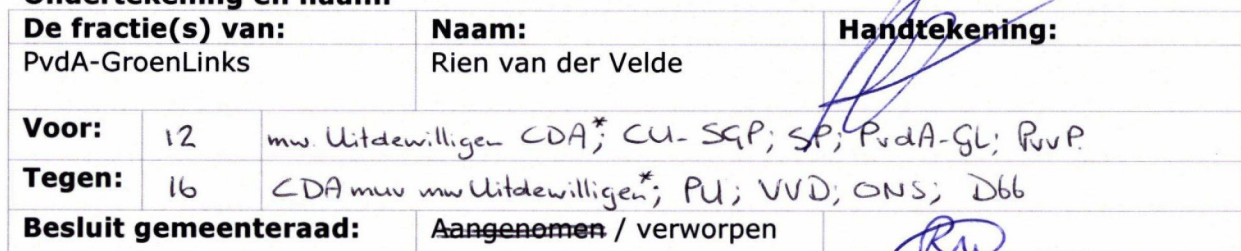 De fractie(s) van: Naam: Handtekening:
PvdA-GroenLinks Rien van der Velde
Voor: 12 mw. Uitdewilligen CDA*; CU-SGP; SP; PvdA-GL; PvvP.
Tegen: 16 CDA muv mw Uitdewilligen*; PU; VVD; ONS; D66
Besluit gemeenteraad: Aangenomen / verworpen